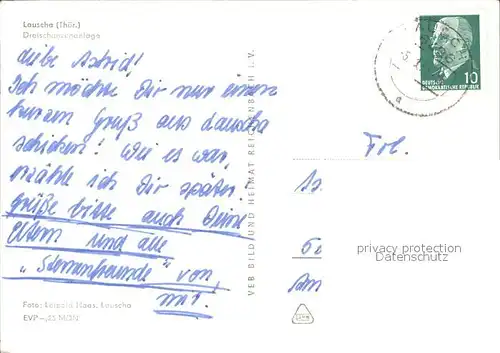 Lauscha (Thür.)
Dreischanzenanlage
Liebe Astrid!
Ich möchte Dir nur einen
kurzen Gruß aus Lauscha
schicken! Wie es war,
erzähle ich Dir später!
Grüße bitte auch Deine
Eltern und alle
"Sternenfreunde" von
Foto: Leopold Haas, Lauscha
EVP -,25 MDN
VEB BILD UND HEIMAT REICHENBACH i. V.
DEUTSCHE
DEMOKRATISCHE REPUBLIK
10
Frl.
privacy protection
Datenschutz